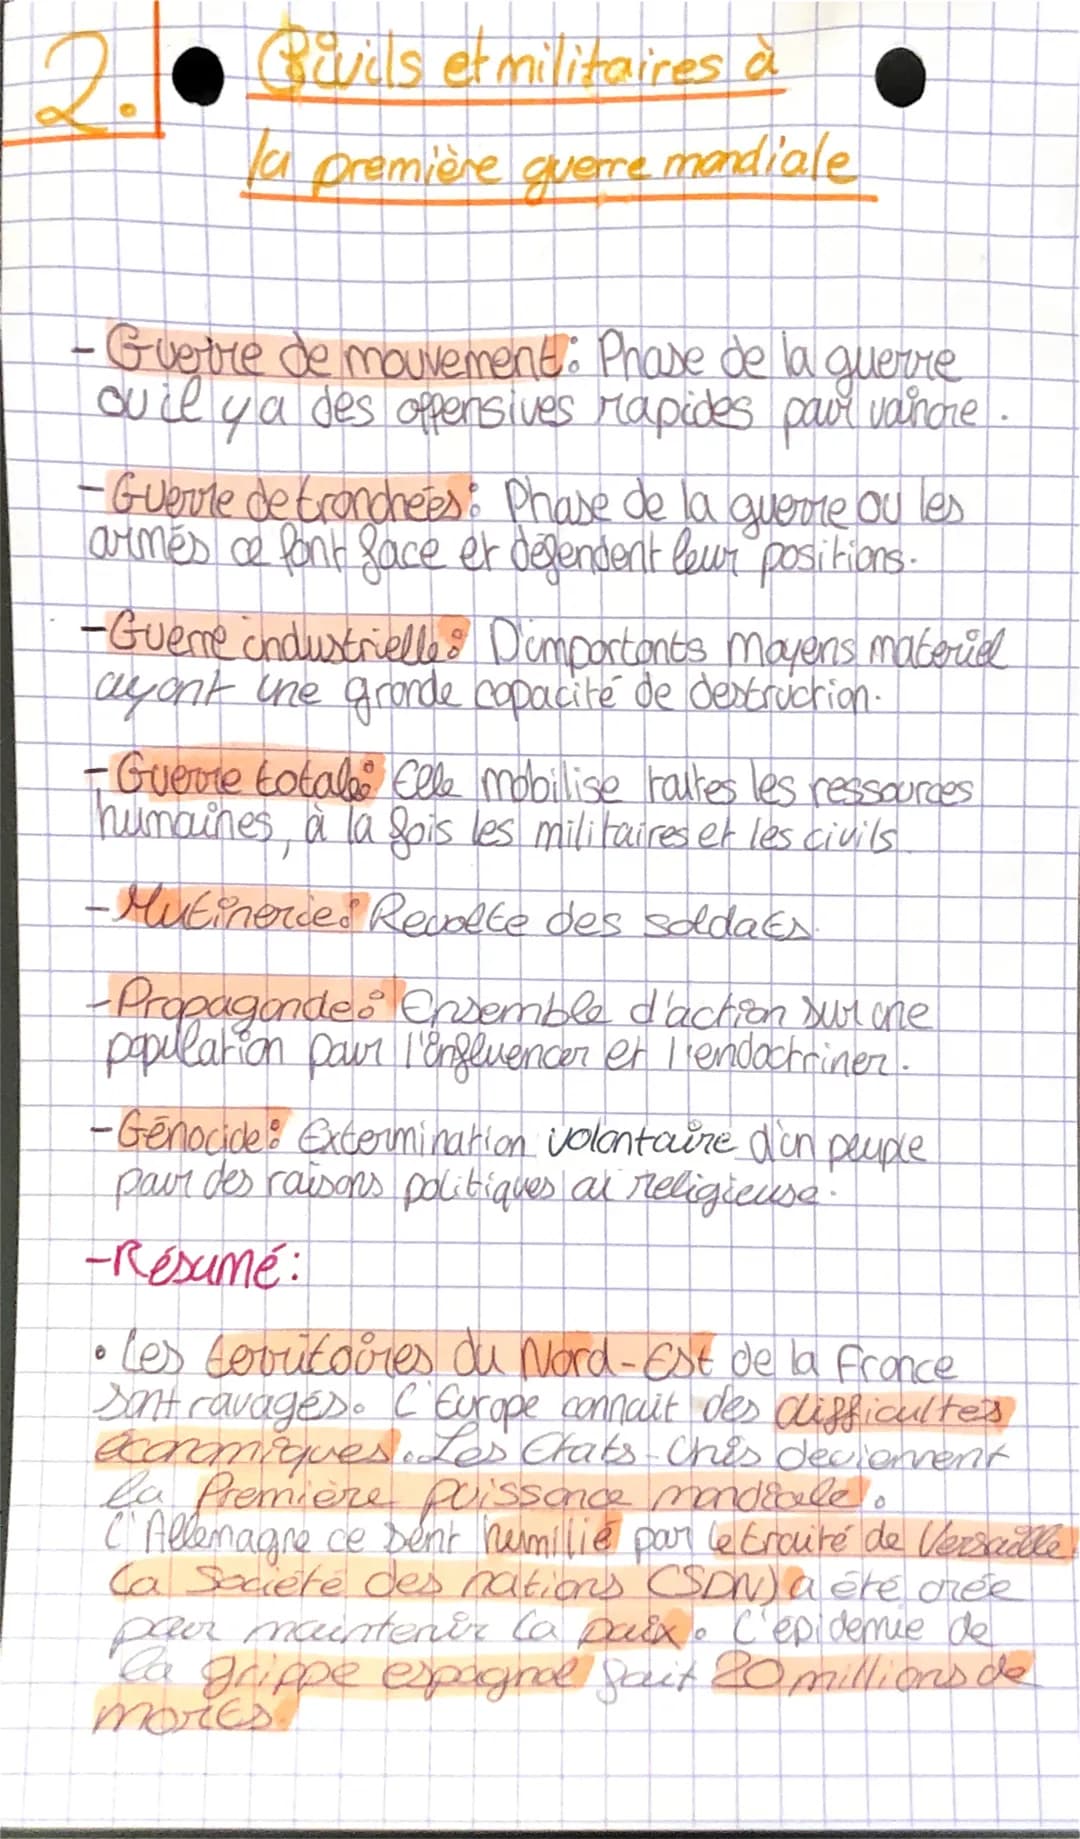 2. Civils et militaires à
la première guerre mondiale
- Guerre de mouvement : Phase de la guerre
ou il y a des offensives rapides pour vaincre.
- Guerre de tranchées : Phase de la guerre ou les
armés ce font face et défendent leur positions.
- Guerre industrielle : D'importants moyens materiel
ayant une grande capacité de destruction.
- Guerre totale : Elle mobilise toutes les ressources
humaines, à la fois les militaires et les civils
- Mutineries : Revolte des soldats.
- Propagande : Ensemble d'action sur une
population pour l'influencer et l'endoctriner.
- Génocide : Extermination volontaire d'un peuple
pour des raisons politiques ou religieuse.
- Résumé :
• Les territoires du Nord-Est de la France
sont ravagés. L'Europe connait des difficultés
économiques. Les Etats-Unis deviennent
la Première puissance mondiale.
L'Allemagne ce sent humilié par le traité de Versaille.
La Société des nations (SDN) a été crée
pour maintenir la paix. L'épidemie de
la grippe espagnol fait 20 millions de
morts.